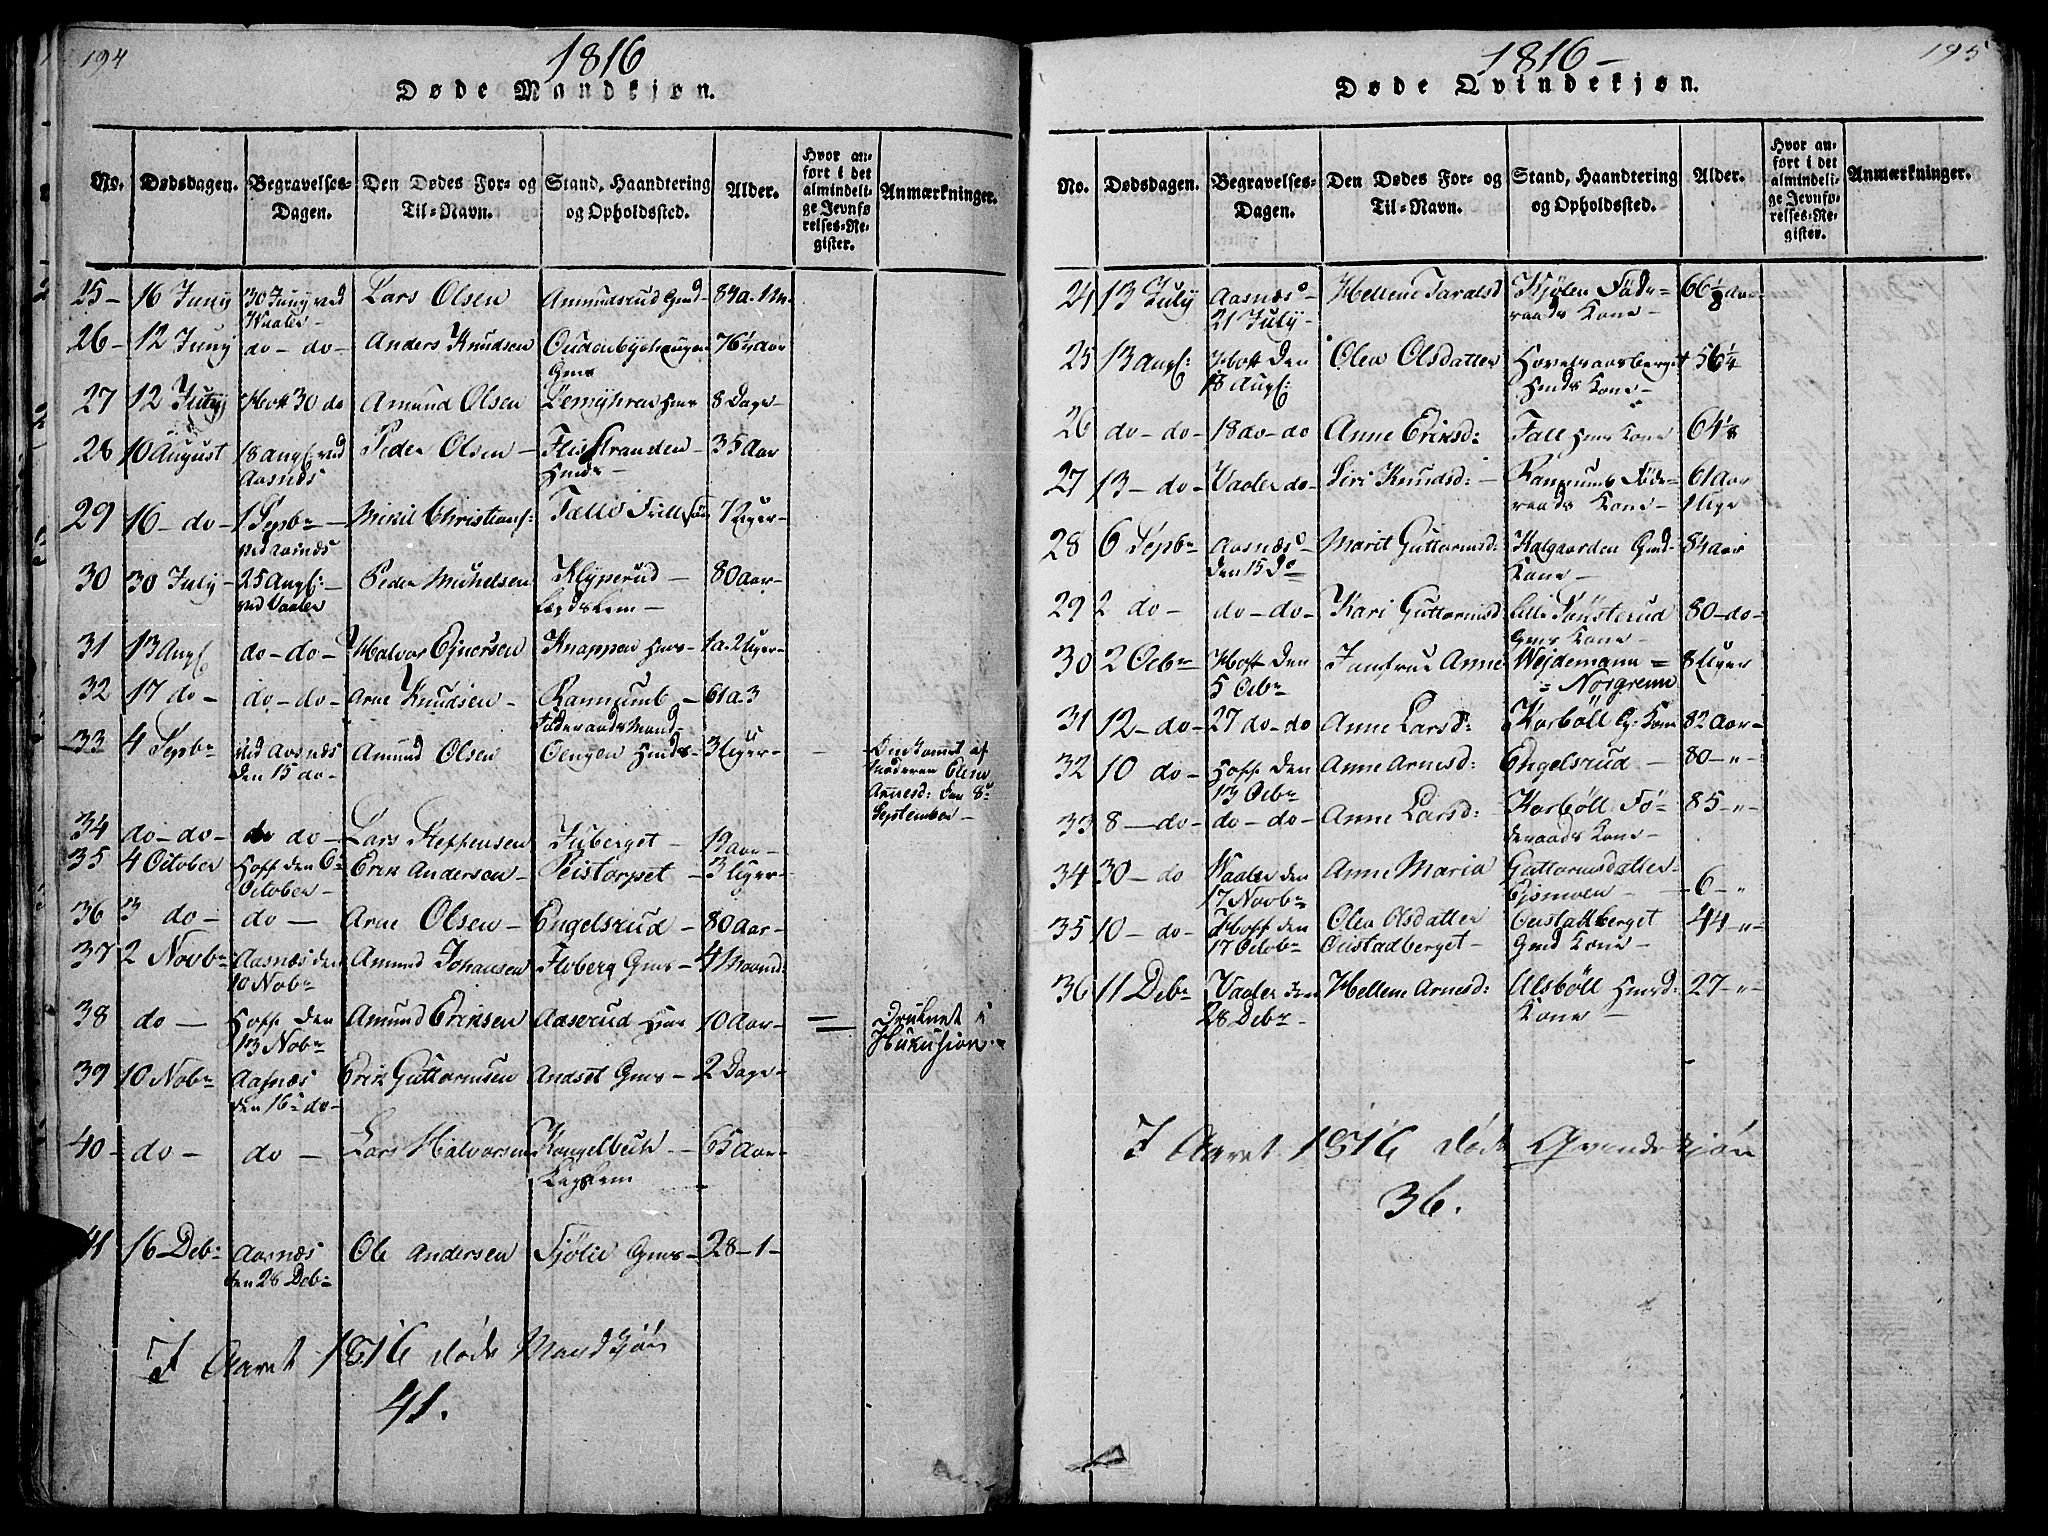 194
1816
Døde Mandkjøn.
No. Dødsdagen. Begravelses-Dagen. Den Dødes For- og Til-Navn. Stand, Haandtering og Opholdssted. Alder. Hvor anført i det almindelige Jevnførelses-Register. Anmærkninger.
25- 16 Juny 30 Juny ved Waaler- Lars Olsen Amundsrud Gmd- 84a. 1M-
26- 12 Juny do- do- Anders Knudsen 76½ Aar
27 12 July Hoff 30 do Amund Olsen 8 Dage-
28 10 August 18 Augs: ved Aasnæs Peder Olsen- Flisstranden 35 Aar
29 16- do- 1 Sepbr- ved Aasnæs Mikil Christians: 7 Uger-
30 30 July- 25 Augs:- ved Vaaler Peder Michelsen Klyperud- Legdslem- 80 Aar-
31 13 Augs do- do- Halvor Ejnersen Knappen 1a. 2 Uger-
32 17 do- do- do- Arne Knudsen- Ramsumb- Föderaads Mand 61a. 3
33 4 Sepbr ved Aasnæs den 15 do- Amund Olsen 3 Uger- - Dimkomet af Moderen Eline Arnesd: den 8de September-
34 do- do- do do- Lars Steffensen Juberget- 19 aar-
35 4 October Hoff den 6te October- Erik Andersen- Peistorpet- 3 Uger-
36 3 do- do- Arne Olsen- Engelsrud- 80 Aar-
37 2 Novbr Aasnæs den 10 Nobr Amund Johansen Floberg Gms- 4 Maand:
38 do- Hoff den 13 Nobr Amund Eriksen Aaserud 10 Aar- Druknet i
39 10 Nobr Aasnæs den 16- do- Erik Guttormsen Andset Gms- 2 Dage-
40- do- do- Lars Halvorsen Kongelbeck- Legslem 65 Aar-
41 16 Deb: Aasnæs den 28 Debr Ole Andersen Fjölie Gms- 28-1-
I Aaret 1816 døde Mandkjön
41.
1816-
195
Døde Qvindekjøn.
No. Dødsdagen. Begravelses-Dagen. Den Dødes For- og Til-Navn. Stand, Haandtering og Opholdssted. Alder. Hvor anført i det almindelige Jevnførelses-Register. Anmærkninger.
24 13 July Aasnæs- 21 July- Hellene Taralsd Kjölen Föderaads Kone- 66⅛ Aar
25 13 Augs: Hoff den 18 Augs: Olea Olsdatter Kone- 56¼
26 do- do- 18 do- do Anne Eriksd: Fall Kone 64⅛
27 13- do- Vaaler do- Siri Knudsd:- Ramsumb Föderaads Kone- 61 Aar 1 Uge
28 6 Sepbr Aasnæs- den 15 Do Marit Guttormsd: Kalgaarden Gmd- Kone- 84 Aar
29 2 do- do- do- Kari Guttormsd Lille Tönsterud Gms Kone- 80- do-
30 2 Ocbr Hoff den 5 Ocbr Jomfrue Anne Wejdemann = = Norgrenn 8 Uger
31 12- do- 27 do- do Anne Larsd: Korböll Gj: Kone 82 Aar-
32 10 do- Hoff den 13 Ocbr Anne Arnesd: Engelsrud- 80-"-
33 8- do- do- do- Anne Larsd: Korböll Föderaads Kone- 85-"-
34 30- do Vaaler den 17 Novbr Anne Maria Guttormsdatter Ejsmoen- -6-"
35 10- do- Hoff den 17 Octobr Olea Olsdatter Oustadberget- Oustadberget Gmd Kone- 44-"-
36 11 Debr Vaaler den 28 Debr- Hellene Arnesd: Ulsböll Kone- 27-"-
I Aaret 1816 døde Qvindekjön
36.